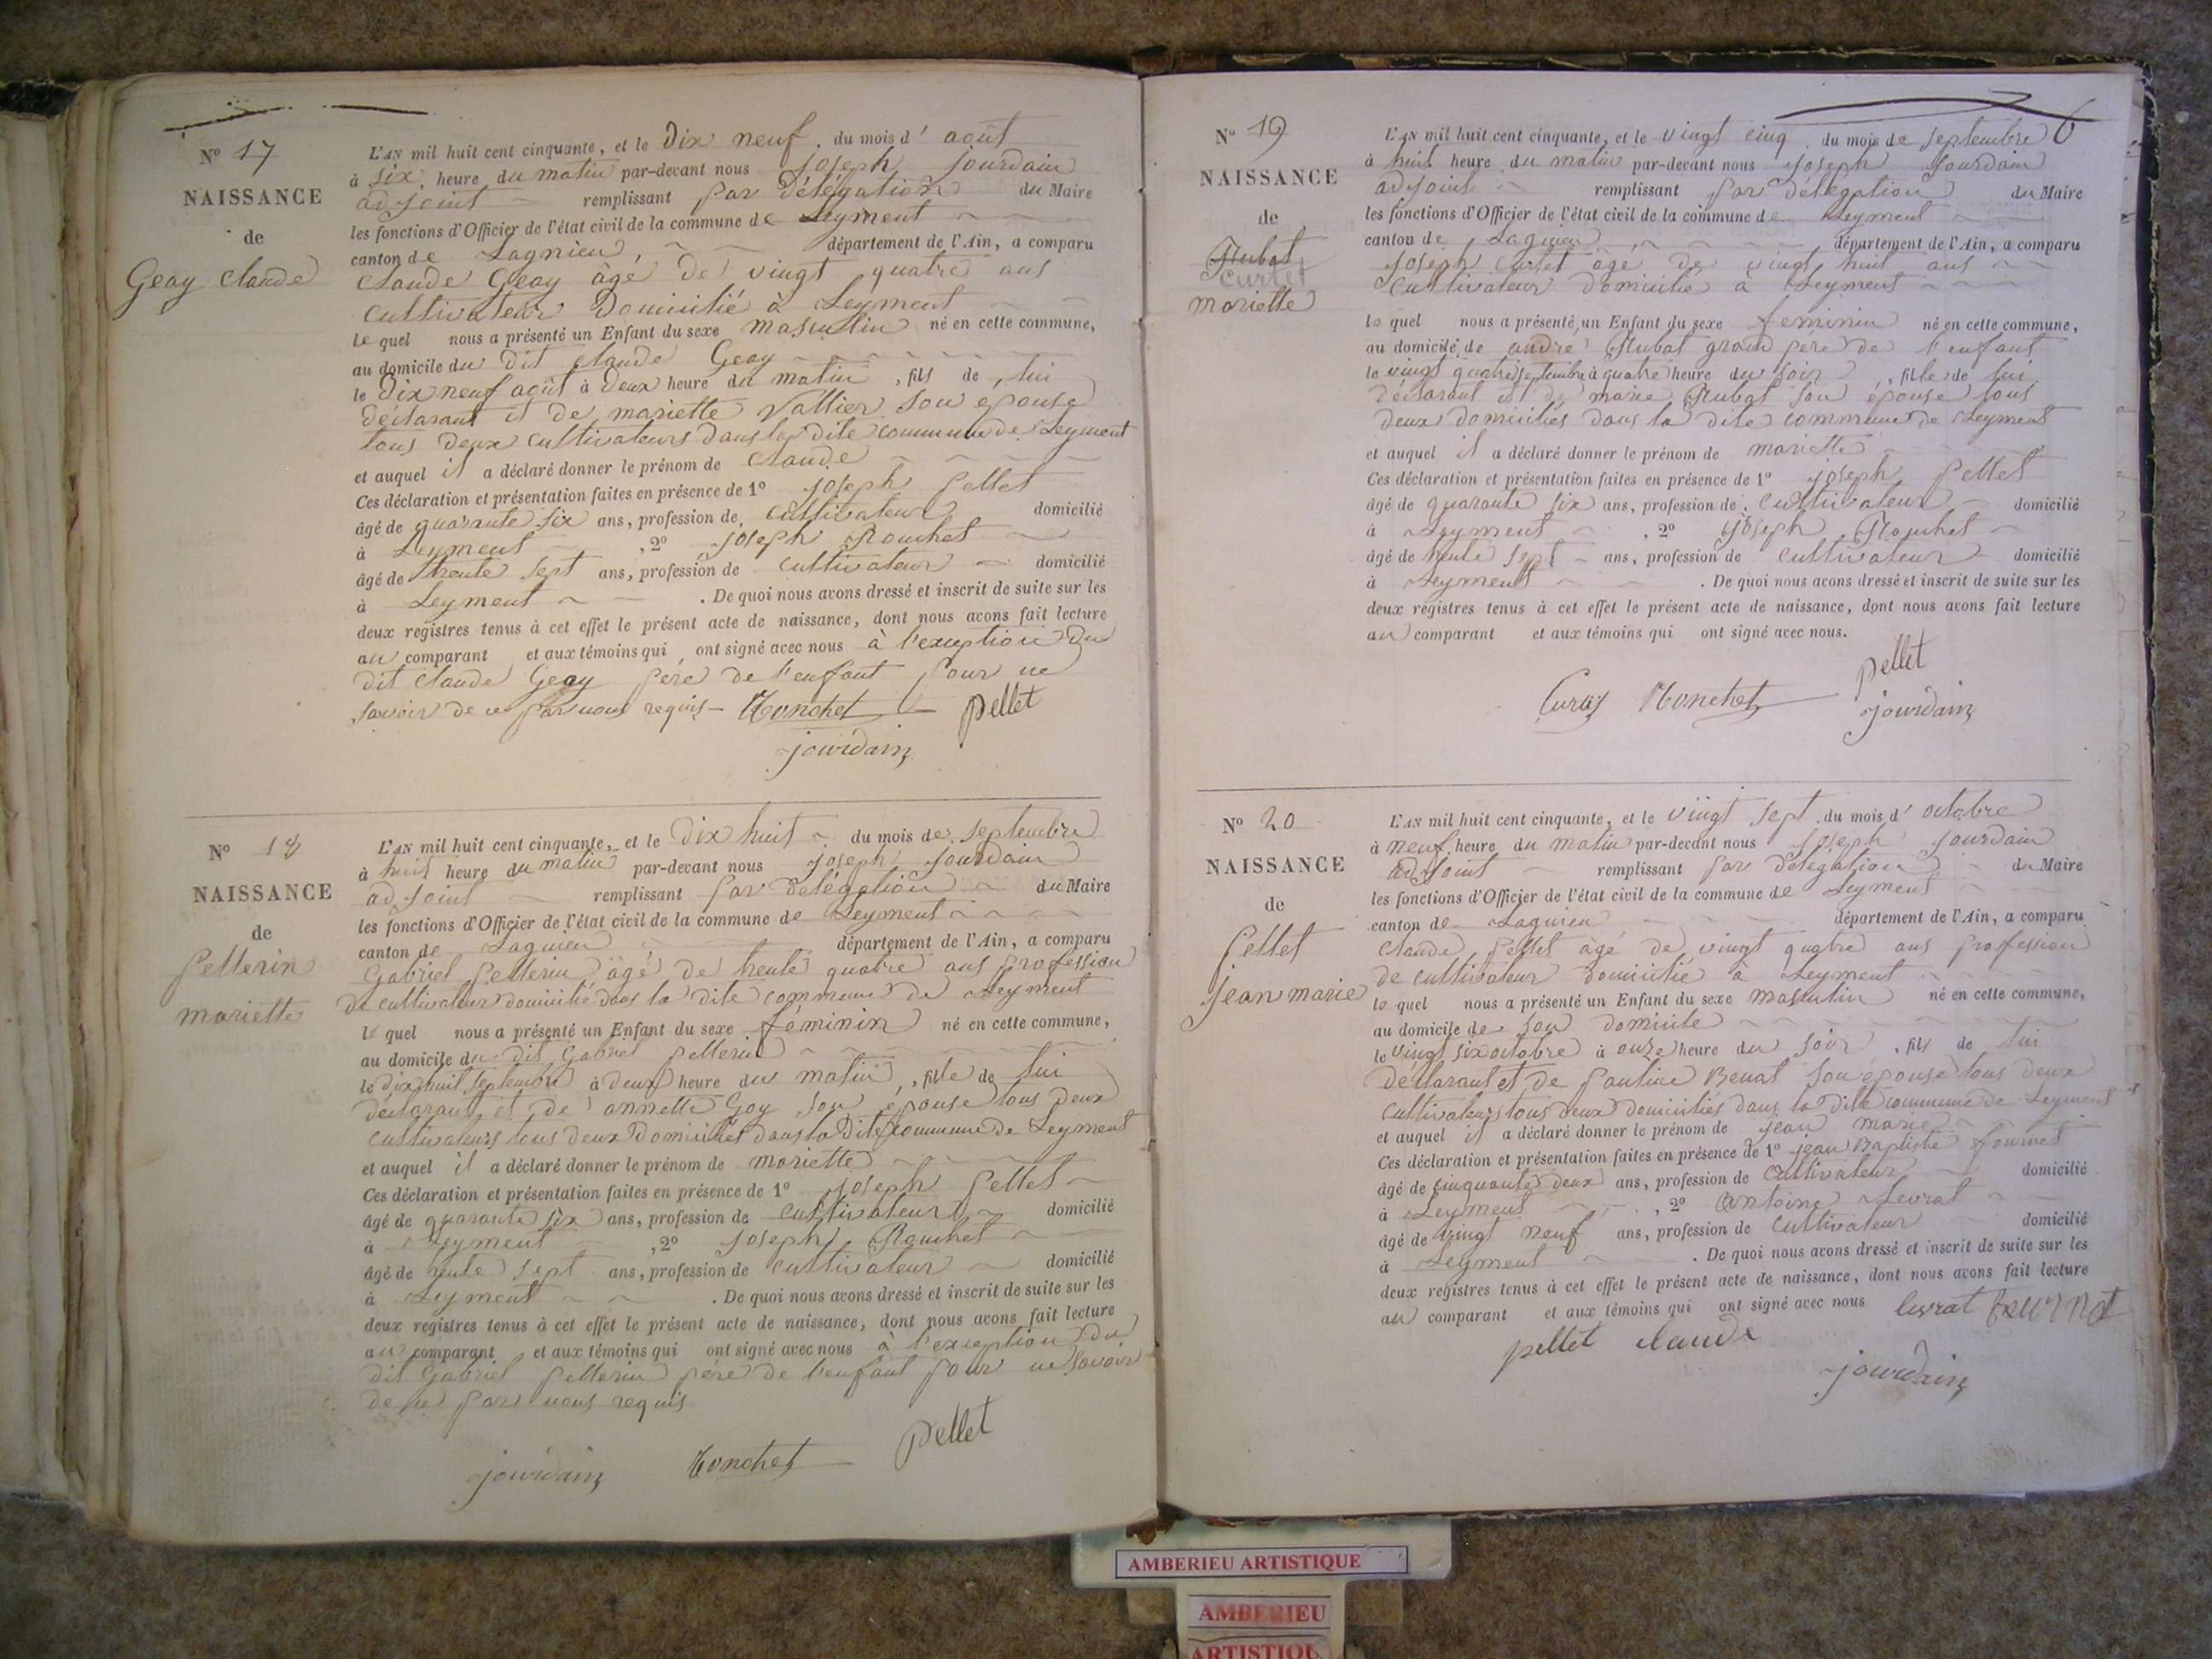 Nº 17
NAISSANCE
de
Geay Claude
L'AN mil huit cent cinquante, et le Dix neuf. du mois d' août
à six heure du matin par-devant nous Joseph Jourdain
adjoint remplissant par Délégation du Maire
les fonctions d'Officier de l'état civil de la commune de Leyment
canton de Lagnieu, département de l'Ain, a comparu
Claude Geay âgé de vingt quatre ans
cultivateur Domicilié à Leyment
le quel nous a présenté un Enfant du sexe masculin né en cette commune,
au domicile du dit Claude Geay
le Dix neuf août à Deux heure du matin, fils de lui
déclarant et de mariette Vallier son epouse
tous deux cultivateurs dans la dite commune de Leyment
et auquel il a déclaré donner le prénom de Claude
Ces déclaration et présentation faites en présence de 1º Joseph Pellet
âgé de quarante six ans, profession de cultivateur domicilié
à Leyment, 2º Joseph Ronchet
âgé de trente sept ans, profession de cultivateur domicilié
à Leyment. De quoi nous avons dressé et inscrit de suite sur les
deux registres tenus à cet effet le présent acte de naissance, dont nous avons fait lecture
au comparant et aux témoins qui ont signé avec nous à l'exception du
dit Claude Geay père de l'enfant pour ne
savoir de ce par nous requis - Ronchet Pellet
Jourdain
Nº 18
NAISSANCE
de
Pellerin
mariette
L'AN mil huit cent cinquante, et le Dix huit du mois de septembre
à huit heure du matin par-devant nous Joseph Jourdain
adjoint remplissant par délégation du Maire
les fonctions d'Officier de l'état civil de la commune de Leyment
canton de Lagnieu département de l'Ain, a comparu
Gabriel Pellerin âgé de trente quatre ans profession
de cultivateur domicilié dans la dite commune de Leyment
le quel nous a présenté un Enfant du sexe féminin né en cette commune,
au domicile du dit Gabriel Pellerin
le dix huit septembre à deux heure du matin, fille de lui
déclarant et de annette Goy son épouse tous deux
cultivateurs tous deux Domiciliés dans la Dite commune de Leyment
et auquel il a déclaré donner le prénom de mariette
Ces déclaration et présentation faites en présence de 1º Joseph Pellet
âgé de quarante six ans, profession de cultivateur domicilié
à Leyment, 2º Joseph Ronchet
âgé de trente sept ans, profession de cultivateur domicilié
à Leyment. De quoi nous avons dressé et inscrit de suite sur les
deux registres tenus à cet effet le présent acte de naissance, dont nous avons fait lecture
au comparant et aux témoins qui ont signé avec nous à l'exception du
dit Gabriel Pellerin père de l'enfant pour ne savoir
de ce par nous requis
Jourdain Ronchet Pellet
6
Nº 19
NAISSANCE
de
Rubat
Curtet
mariette
L'AN mil huit cent cinquante, et le vingt cinq du mois de septembre
à huit heure du matin par-devant nous Joseph Jourdain
adjoint remplissant par délégation du Maire
les fonctions d'Officier de l'état civil de la commune de Leyment
canton de Lagnieu département de l'Ain, a comparu
Joseph Curtet âgé de vingt huit ans
cultivateur domicilié à Leyment
le quel nous a présenté un Enfant du sexe feminin né en cette commune,
au domicile de andré Rubat grand père de l'enfant
le vingt quatre septembre à quatre heure du soir, fille de lui
déclarant et de marie Rubat son épouse tous
deux domiciliés dans la dite commune de Leyment
et auquel il a déclaré donner le prénom de mariette
Ces déclaration et présentation faites en présence de 1º Joseph Pellet
âgé de quarante six ans, profession de cultivateur domicilié
à Leyment, 2º Joseph Ronchet
âgé de trente sept ans, profession de cultivateur domicilié
à Leyment. De quoi nous avons dressé et inscrit de suite sur les
deux registres tenus à cet effet le présent acte de naissance, dont nous avons fait lecture
au comparant et aux témoins qui ont signé avec nous.
Ronchet Pellet
Jourdain
Nº 20
NAISSANCE
de
Pellet
Jean marie
L'AN mil huit cent cinquante, et le vingt sept du mois d' octobre
à neuf heure du matin par-devant nous Joseph Jourdain
adjoint remplissant par délégation du Maire
les fonctions d'Officier de l'état civil de la commune de Leyment
canton de Lagnieu département de l'Ain, a comparu
Claude Pellet âgé de vingt quatre ans profession
de cultivateur domicilié à Leyment
le quel nous a présenté un Enfant du sexe masculin né en cette commune,
au domicile de son domicile
le vingt six octobre à onze heure du soir, fils de lui
déclarant et de pauline Benat son epouse tous deux
cultivateurs tous deux domiciliés dans la dite commune de Leyment
et auquel il a déclaré donner le prénom de Jean marie
Ces déclaration et présentation faites en présence de 1º Jean Baptiste fournet
âgé de cinquante deux ans, profession de cultivateur domicilié
à Leyment, 2º Antoine Levrat
âgé de vingt neuf ans, profession de cultivateur domicilié
à Leyment. De quoi nous avons dressé et inscrit de suite sur les
deux registres tenus à cet effet le présent acte de naissance, dont nous avons fait lecture
au comparant et aux témoins qui ont signé avec nous levrat
pellet claude
Jourdain
AMBERIEU ARTISTIQUE
AMBERIEU